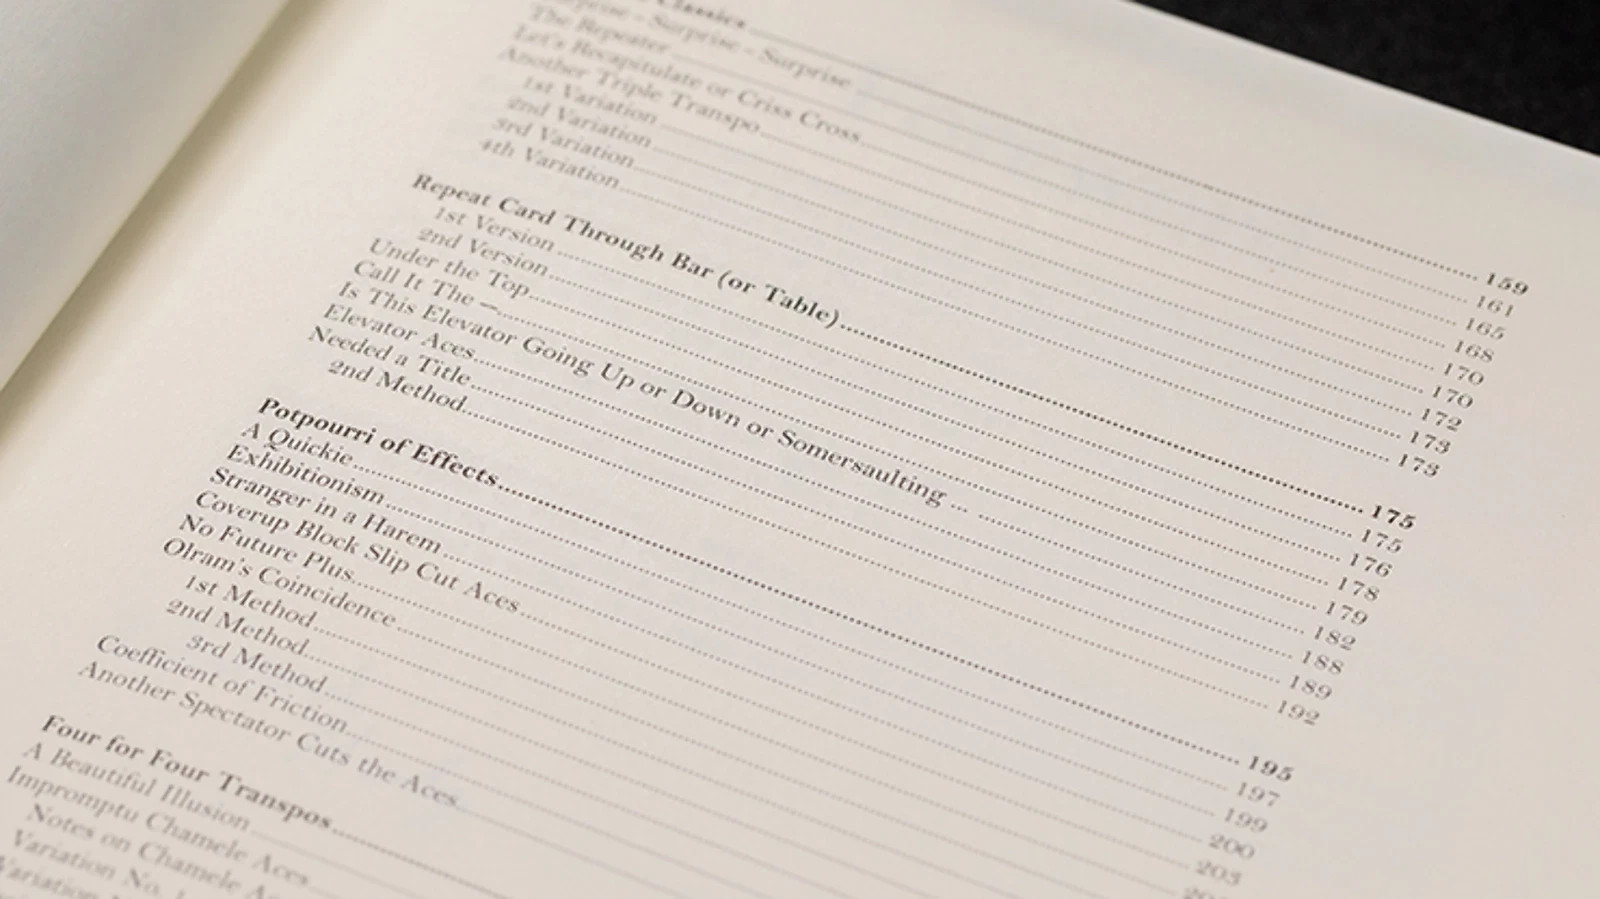 Classics 159
Surprise - Surprise - Surprise 161
The Repeater 165
Let's Recapitulate or Criss Cross 168
Another Triple Transpo 170
1st Variation 170
2nd Variation 172
3rd Variation 173
4th Variation 173
Repeat Card Through Bar (or Table) 175
1st Version 175
2nd Version 176
Under the Top 178
Call It The — 179
Is This Elevator Going Up or Down or Somersaulting ... 182
Elevator Aces 188
Needed a Title 189
2nd Method 192
Potpourri of Effects 195
A Quickie 197
Exhibitionism 199
Stranger in a Harem 200
Coverup Block Slip Cut Aces 203
No Future Plus
Olram's Coincidence
1st Method
2nd Method
3rd Method
Coefficient of Friction
Another Spectator Cuts the Aces
Four for Four Transpos
A Beautiful Illusion
Impromptu Chamele Aces
Notes on Chamele
Variation No.
Variation